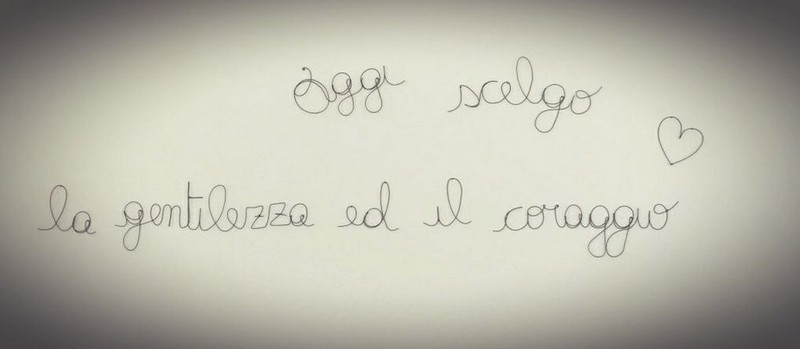 Oggi scelgo
la gentilezza ed il coraggio